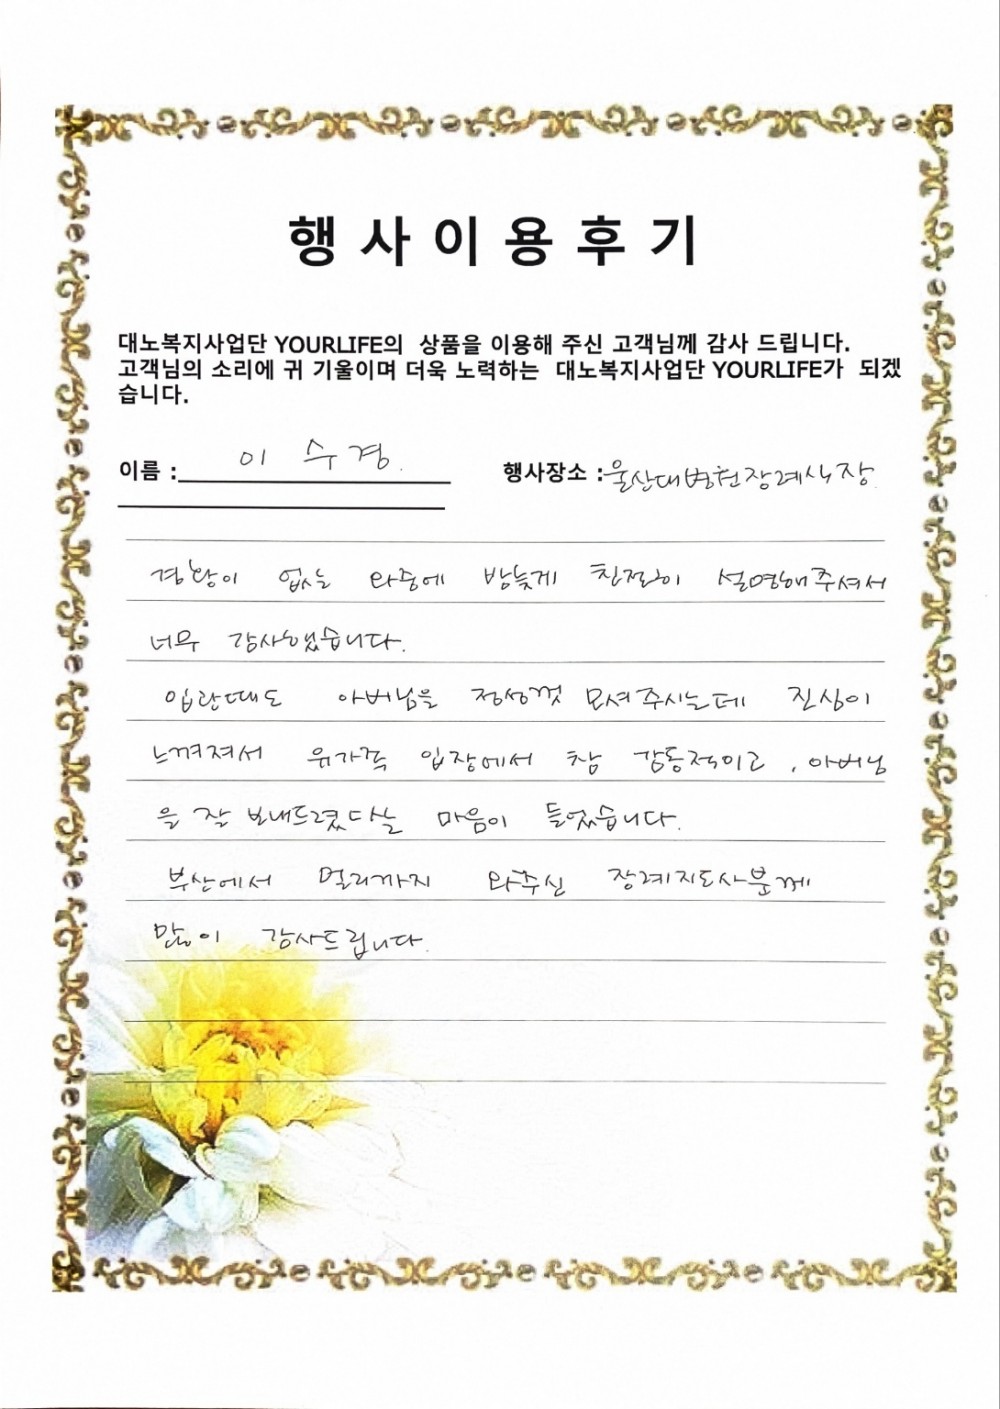 행 사 이 용 후 기
대노복지사업단 YOURLIFE의 상품을 이용해 주신 고객님께 감사 드립니다.
고객님의 소리에 귀 기울이며 더욱 노력하는 대노복지사업단 YOURLIFE가 되겠
습니다.
이름 : 이 수 경. 행사장소 : 울산대병원장례식장.
경황이 없는 와중에 밤늦게 친절히 설명해주셔서
너무 감사했습니다.
입관때도 아버님을 정성껏 모셔주시는데 진심이
느껴져서 유가족 입장에서 참 감동적이고, 아버님
을 잘 보내드렸다는 마음이 들었습니다.
부산에서 멀리까지 와주신 장례지도사분께
많이 감사드립니다.